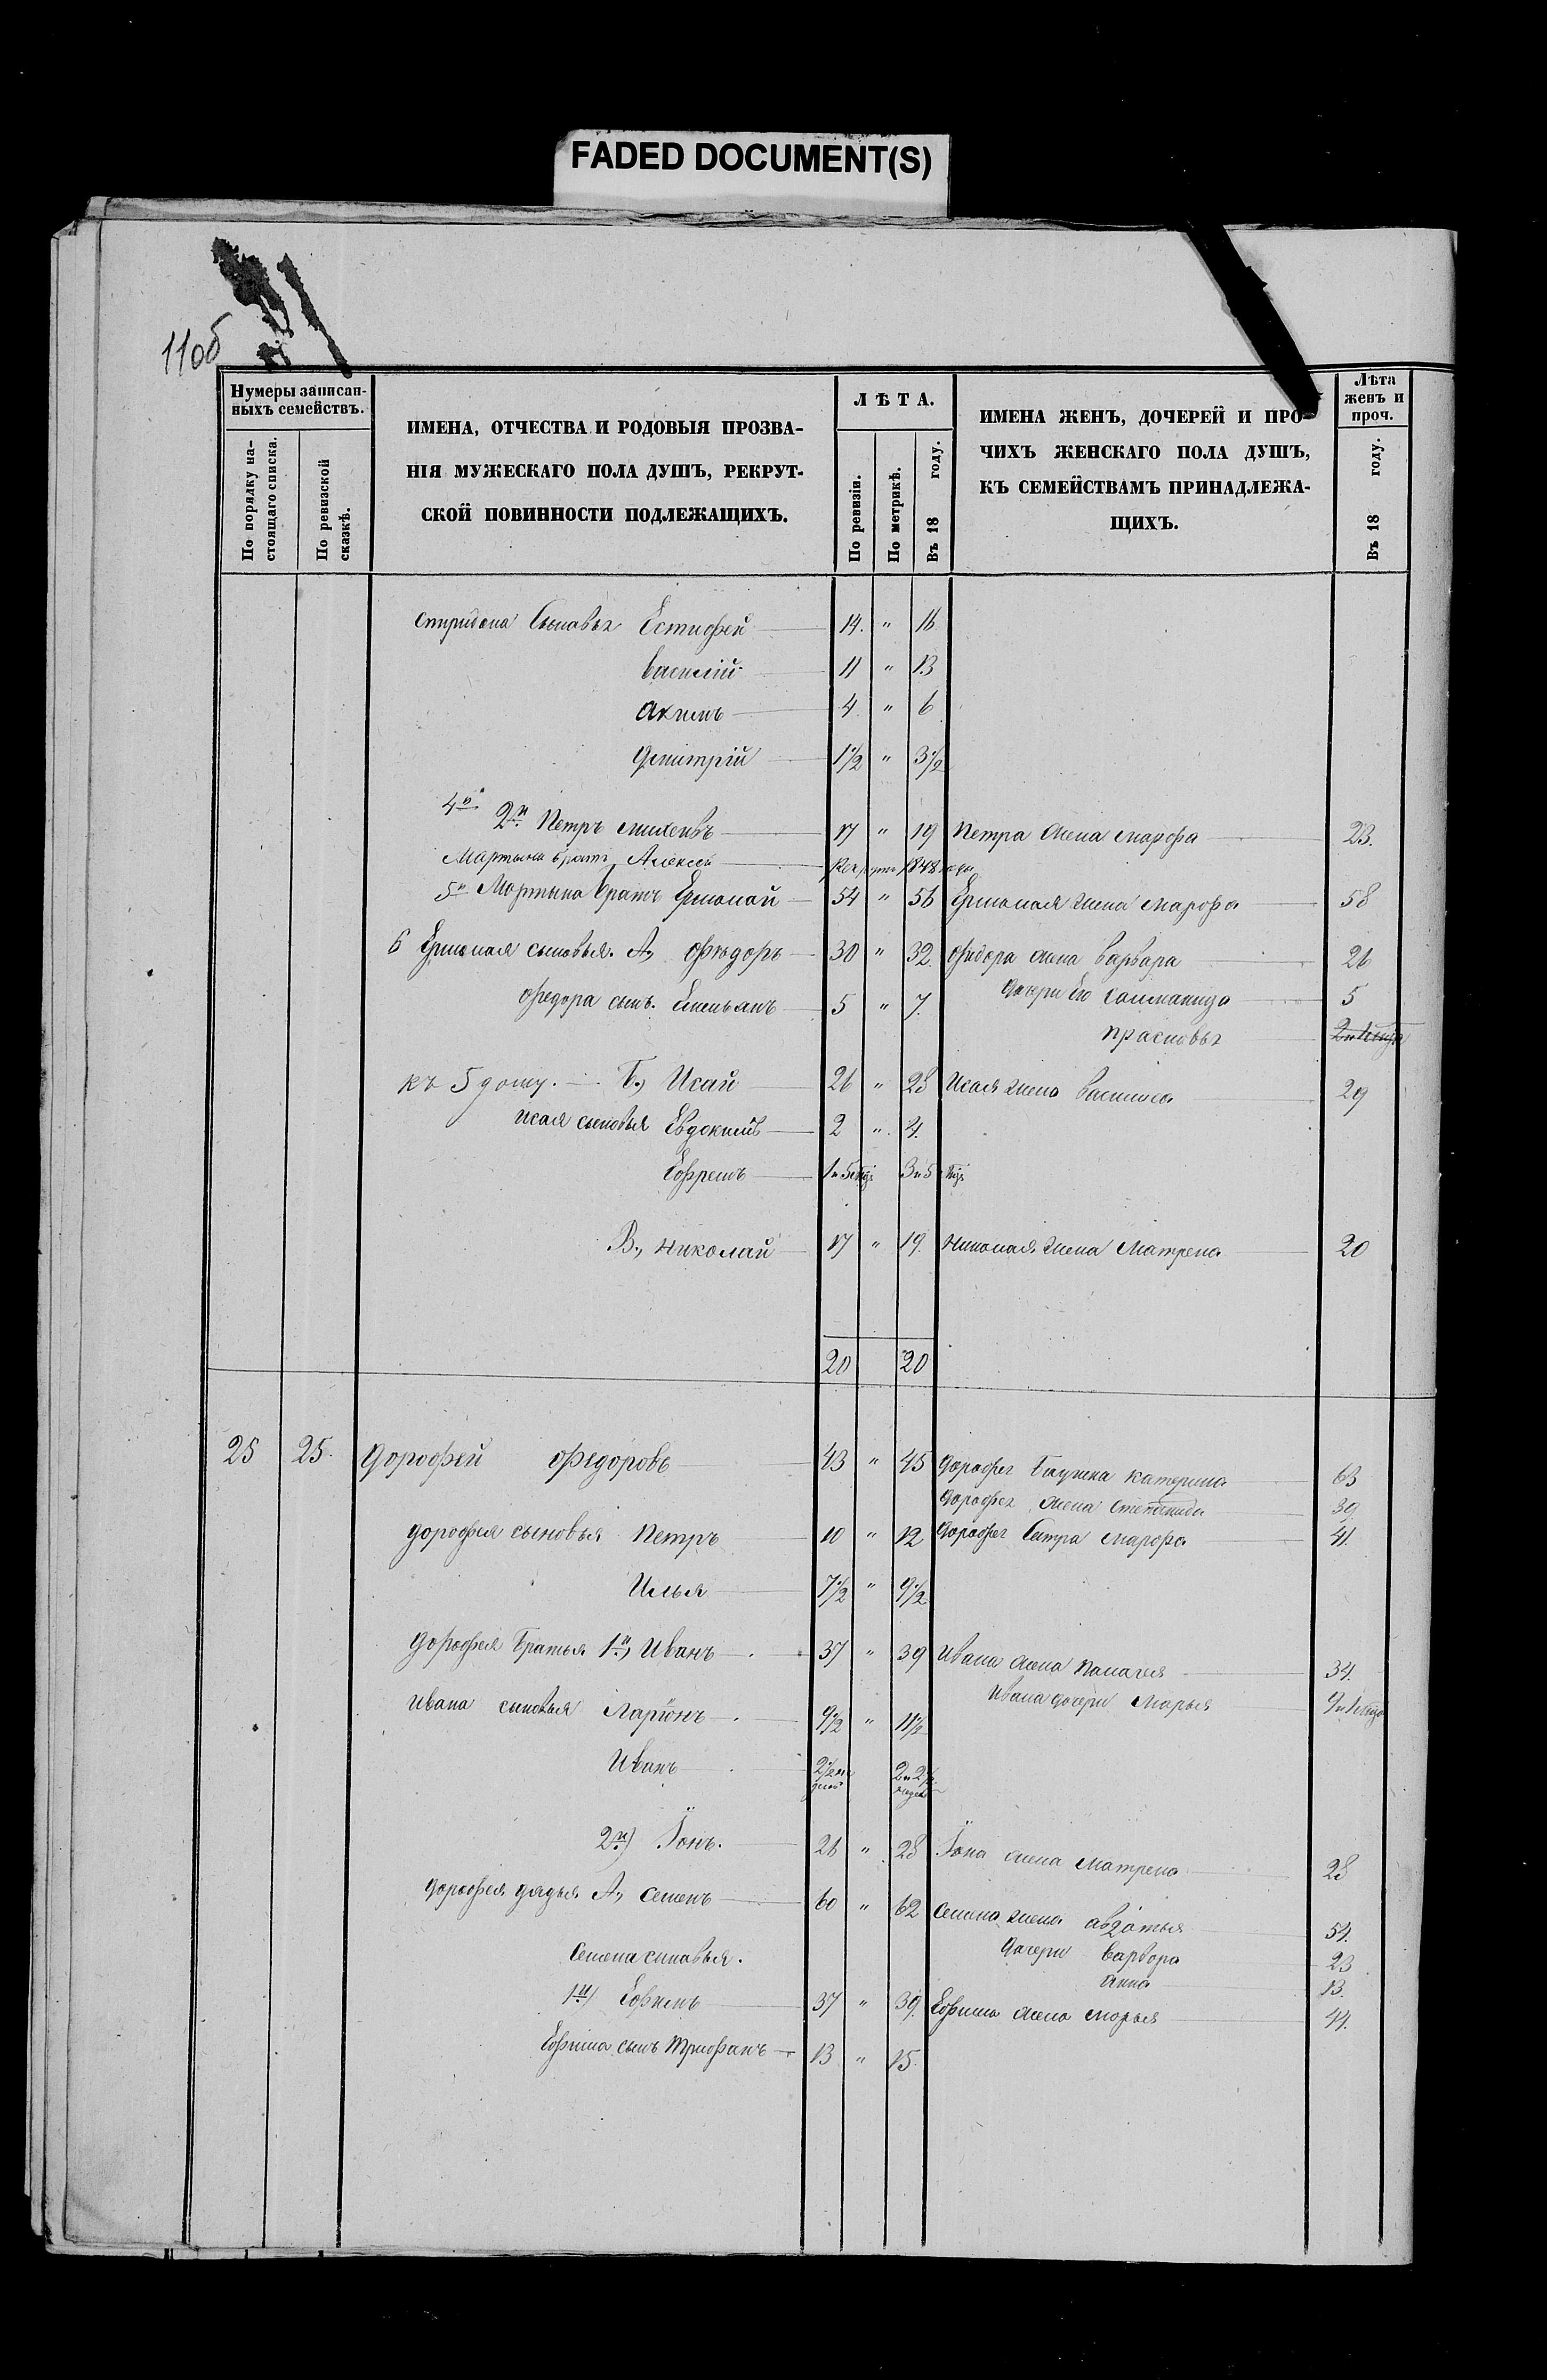 FADED DOCUMENT(S)
11об
Нумеры записан-
ныхъ семействъ.
По порядку на-
стоящаго списка.
По ревизской
сказкѣ.
ИМЕНА, ОТЧЕСТВА И РОДОВЫЯ ПРОЗВА-
НІЯ МУЖЕСКАГО ПОЛА ДУШЪ, РЕКРУТ-
СКОЙ ПОВИННОСТИ ПОДЛЕЖАЩИХЪ.
ЛѢТА.
По ревизіи.
По метрикѣ.
Въ 18 году.
ИМЕНА ЖЕНЪ, ДОЧЕРЕЙ И ПРО-
ЧИХЪ ЖЕНСКАГО ПОЛА ДУШЪ,
КЪ СЕМЕЙСТВАМЪ ПРИНАДЛЕЖА-
ЩИХЪ.
Лѣта
женъ и
проч.
Въ 18 году.
Спиридона Сыновья Естифей 14. " 16
Василій 11 " 13
Акимъ 4 " 6
Димитрій 1 1/2 " 3 1/2
4й
2й Петръ Михеивъ 17 " 19 Петра жена Марфа 23.
Мартына братъ Алексей Рекрутъ 1848 года
5й Мартына братъ Ермолай 54 " 56 Ермолая жена Марфа 58
6 Ермолая сыновья. А, Фюдоръ 30 " 32. Федора жена Варвара 26
Федора сынъ. Емельянъ 5 " 7. Дочери Ею Соломанида 5
Прасковья
къ 5 дому. Б, Исай 26 " 28 Исая жена Василиса 29
Исая сыновья Евдокимъ 2 " 4.
Ефремъ
В, Николай 17 " 19. Николая жена Матрена 20
20 20
25 25. Дорофей Федоровъ 43 " 45 Дорофея катерина 63
Дорофея жена Степанида 39.
Дорофея сыновья Петръ 10 " 12 Дорофея Сестра Марфа 41.
Илья 7 1/2 " 9 1/2
Дорофея братья 1й, Иванъ 37 " 39 Ивана жена Палагея 34.
Ивана сыновья Ларіонъ 9 1/2 " 11 1/2 Ивана дочери Марья
Иванъ
2й) Іонъ. 26 " 28 Іона жена Матрена 28
Дорофея дядья А, Семенъ 60 " 62 Семена жена Авдотья 54.
Семена сыновья. Дочери Варвора 23
Анна 13.
1й) Ефимъ 37 " 39. Ефима жена Марья 44.
Ефима сынъ Трифанъ 13 " 15.